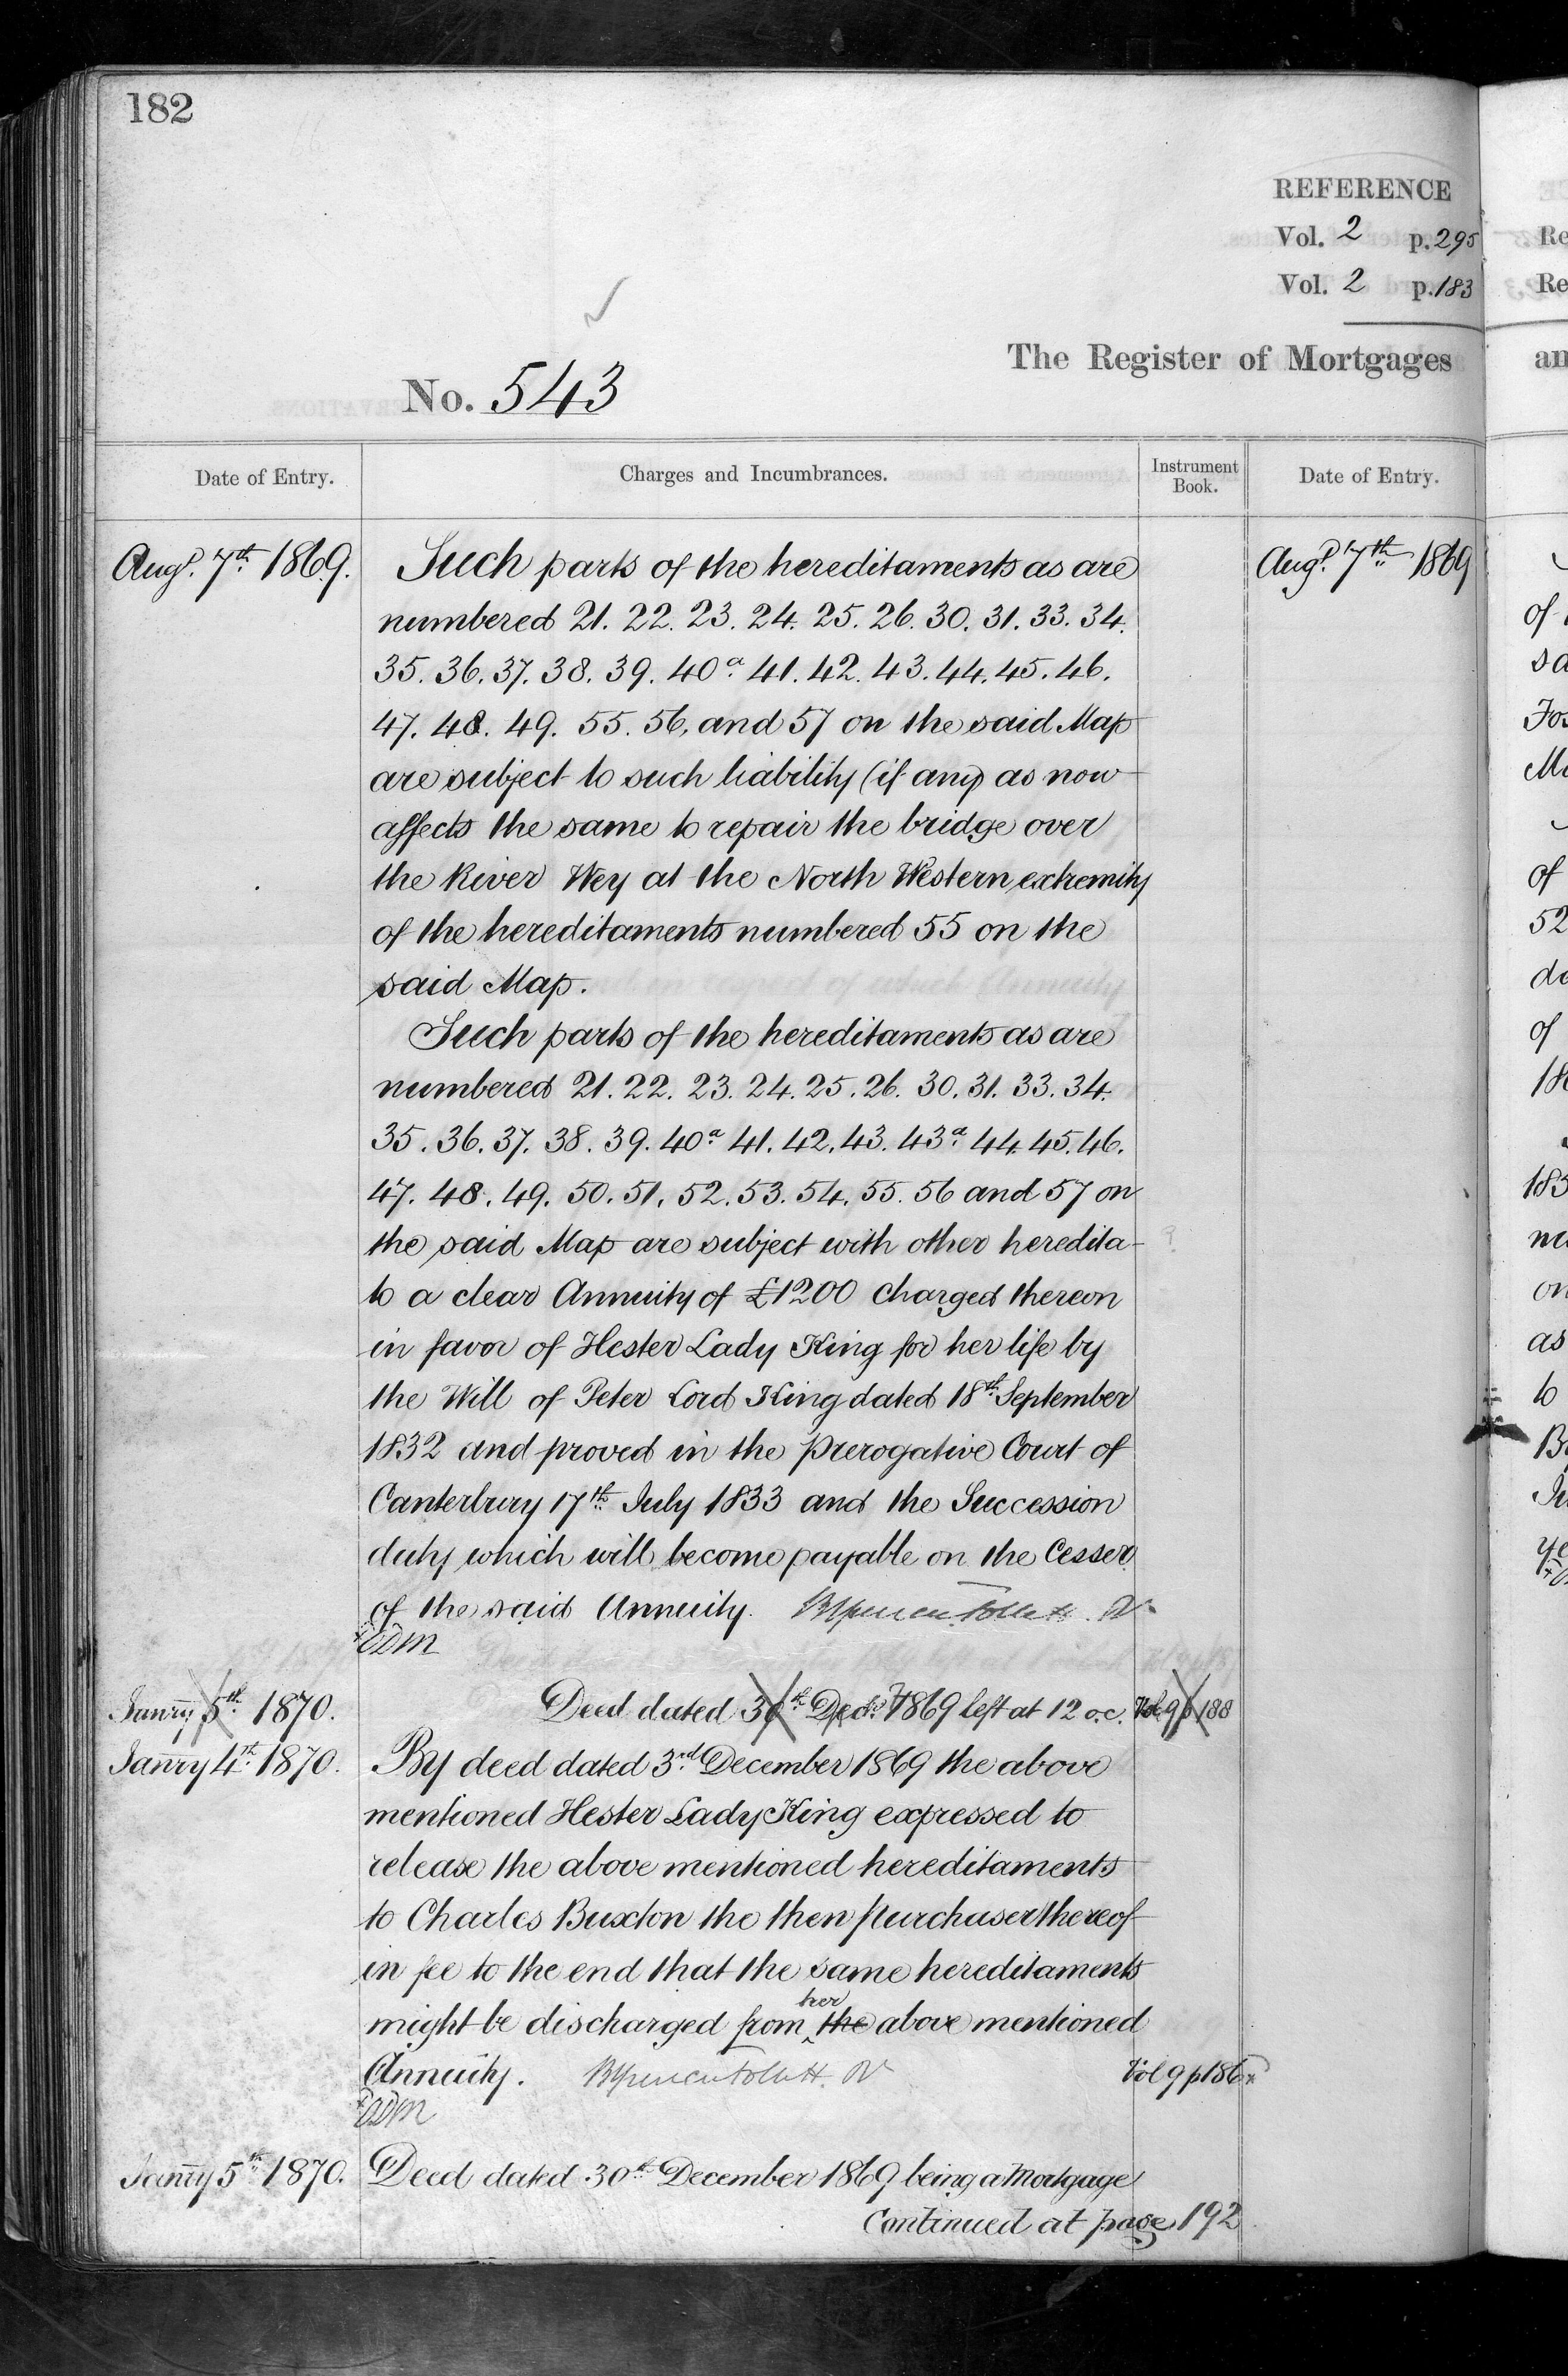 182
REFERENCE
Vol. 2 p. 295
Vol. 2 p. 183
The Register of Mortgages
No. 543
Date of Entry.
Charges and Incumbrances.
Instrument Book.
Date of Entry.
Augt. 7th 1869.
Such parts of the hereditaments as are
numbered 21. 22. 23. 24. 25. 26. 30. 31. 33. 34.
35. 36. 37. 38. 39. 40a 41. 42. 43. 44. 45. 46.
47. 48. 49. 55. 56, and 57 on the said Map
are subject to such liability (if any) as now
affects the same to repair the bridge over
the River Wey at the North Western extremity
of the hereditaments numbered 55 on the
said Map.
Such parts of the hereditaments as are
numbered 21. 22. 23. 24. 25. 26. 30. 31. 33. 34.
35. 36. 37. 38. 39. 40a 41. 42. 43. 43a 44. 45. 46.
47. 48. 49. 50. 51. 52. 53. 54. 55. 56 and 57 on
the said Map are subject with other heredita-
to a clear Annuity of £1200 charged thereon
in favor of Hester Lady King for her life by
the Will of Peter Lord King dated 18th September
1832 and proved in the Prerogative Court of
Canterbury 17th July 1833 and the Succession
duty which will become payable on the Cesser
of the said Annuity.
Augt. 7th 1869
Janry 5th 1870.
Deed dated 30th Decr. 1869 left at 12 o.c.
Vol 9 p 188
Janry 4th 1870.
By deed dated 3rd December 1869 the above
mentioned Hester Lady King expressed to
release the above mentioned hereditaments
to Charles Buxton the then purchaser thereof
in fee to the end that the same hereditaments
might be discharged from her the above mentioned
Annuity.
Vol 9 p 186
Janry 5th 1870.
Deed dated 30th December 1869 being a Mortgage
Continued at page 192